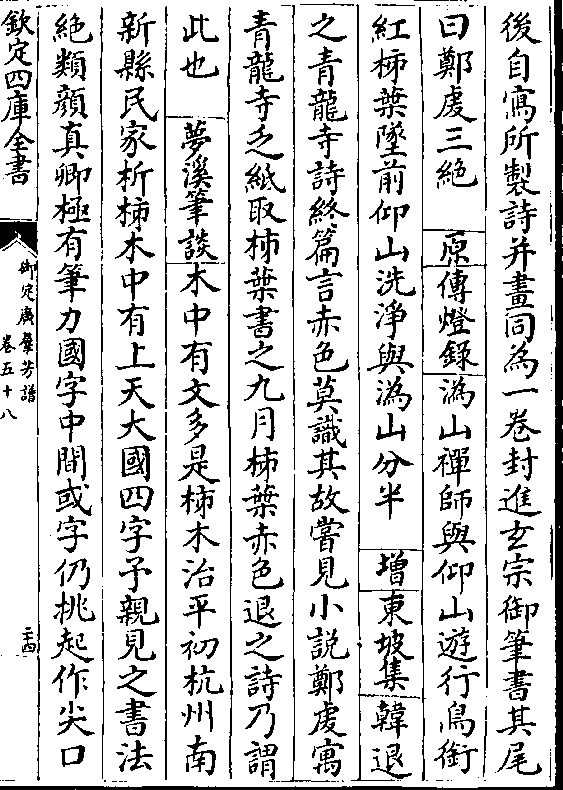 後自寫所製詩并畫同為一卷封進玄宗御筆書其尾
曰鄭虔三絶 原傳燈錄 溈山禪師與仰山遊行鳥銜
紅柿葉墜前仰山洗淨與溈山分半 增東坡集 韓退
之青龍寺詩終篇言赤色莫識其故嘗見小說鄭虔寓
青龍寺乏紙取柿葉書之九月柿葉赤色退之詩乃謂
此也 夢溪筆談 木中有文多是柿木治平初杭州南
新縣民家析柿木中有上天大國四字予親見之書法
絶類顔真卿極有筆力國字中間或字仍挑起作尖口
欽定四庫全書
御定廣羣芳譜
卷五十八
二十四